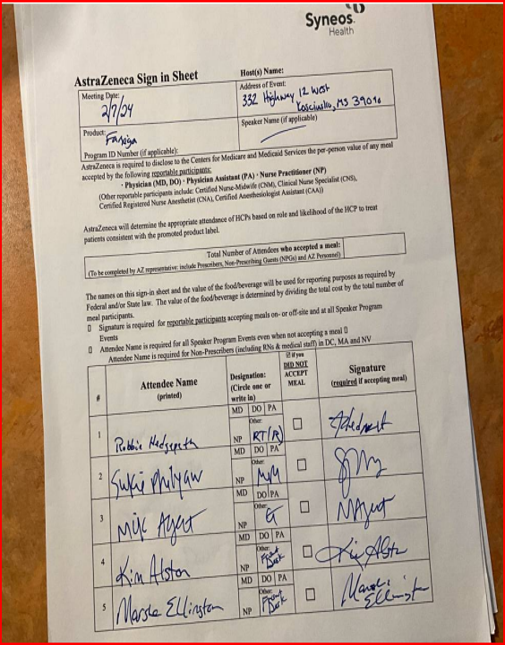 Syneos
Health
AstraZeneca Sign in Sheet
Host(s) Name:
Meeting Date:
2/7/24
Address of Event:
332 Highway 12 West
Kosciusko, MS 39090
Product:
Farxiga
Speaker Name (if applicable)
Program ID Number (if applicable):
AstraZeneca is required to disclose to the Centers for Medicare and Medicaid Services the per-person value of any meal
accepted by the following reportable participants:
· Physician (MD, DO) · Physician Assistant (PA) · Nurse Practitioner (NP)
(Other reportable participants include: Certified Nurse-Midwife (CNM), Clinical Nurse Specialist (CNS),
Certified Registered Nurse Anesthetist (CNA), Certified Anesthesiologist Assistant (CAA))
AstraZeneca will determine the appropriate attendance of HCPs based on role and likelihood of the HCP to treat
patients consistent with the promoted product label.
Total Number of Attendees who accepted a meal:
(To be completed by AZ representative: include Prescribers, Non-Prescribing Guests (NPGs) and AZ Personnel)
The names on this sign-in sheet and the value of the food/beverage will be used for reporting purposes as required by
Federal and/or State law. The value of the food/beverage is determined by dividing the total cost by the total number of
meal participants.
Signature is required for reportable participants accepting meals on- or off-site and at all Speaker Program
Events
Attendee Name is required for all Speaker Program Events even when not accepting a meal
Attendee Name is required for Non-Prescribers (including RNs & medical staff) in DC, MA and NV
# Attendee Name (printed) Designation: (Circle one or write in) if you DID NOT ACCEPT MEAL Signature (required if accepting meal)
MD DO PA
Other:
1 Robbie Hedgepeth NP RT(R)
MD DO PA
Other:
2 Philyaw NP
MD DO PA
Other:
3 NP
MD DO PA
Other:
4 Kim Alston NP Front Desk Kim Alston
MD DO PA
Other:
5 Marsha Ellington NP Front Desk Marsha Ellington